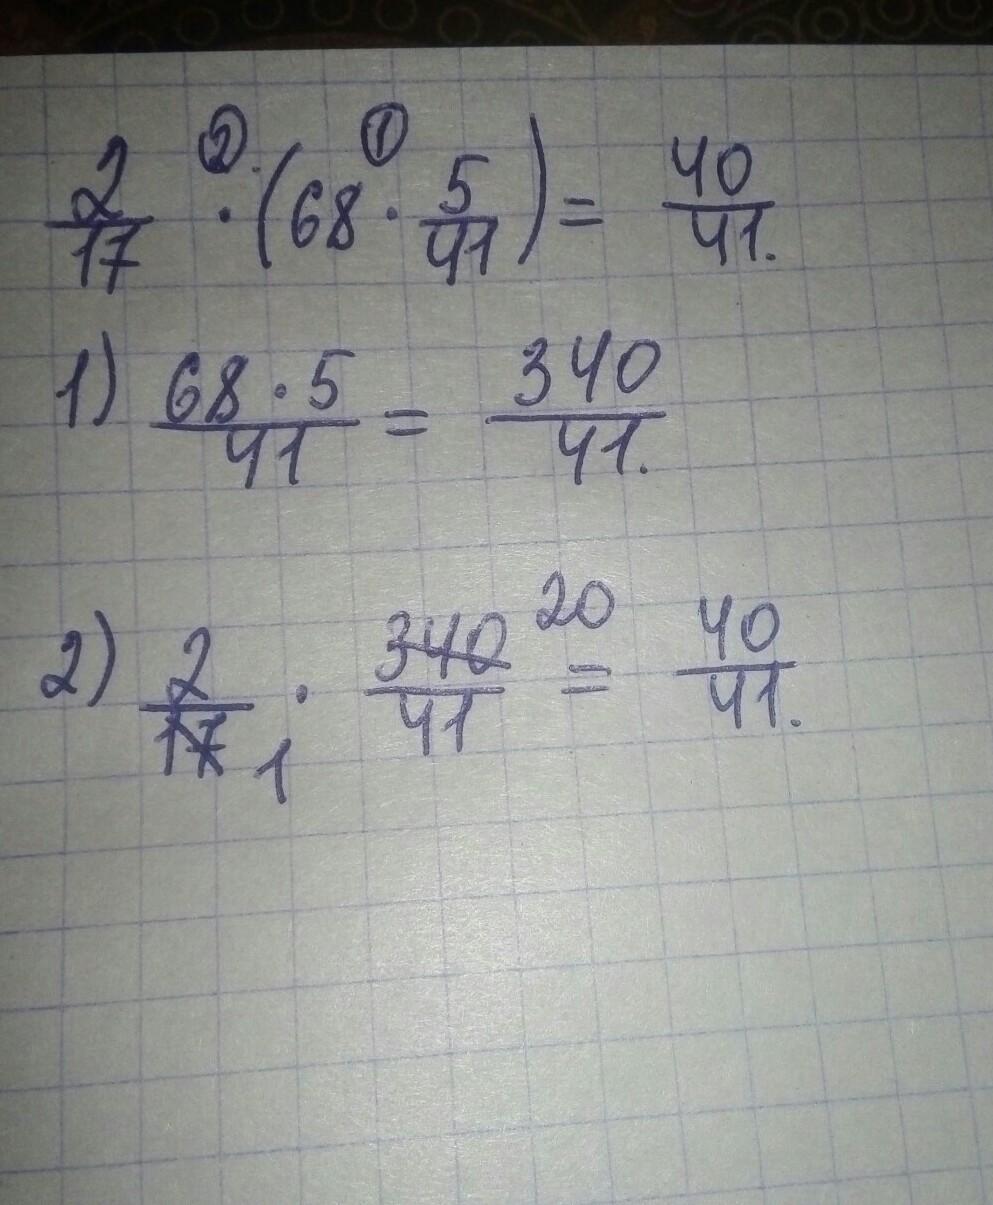 ② ①
2/17 · (68 · 5/41) = 40/41.
1) 68 · 5/41 = 340/41.
2) 2/17 1 · 340/41 20 = 40/41.